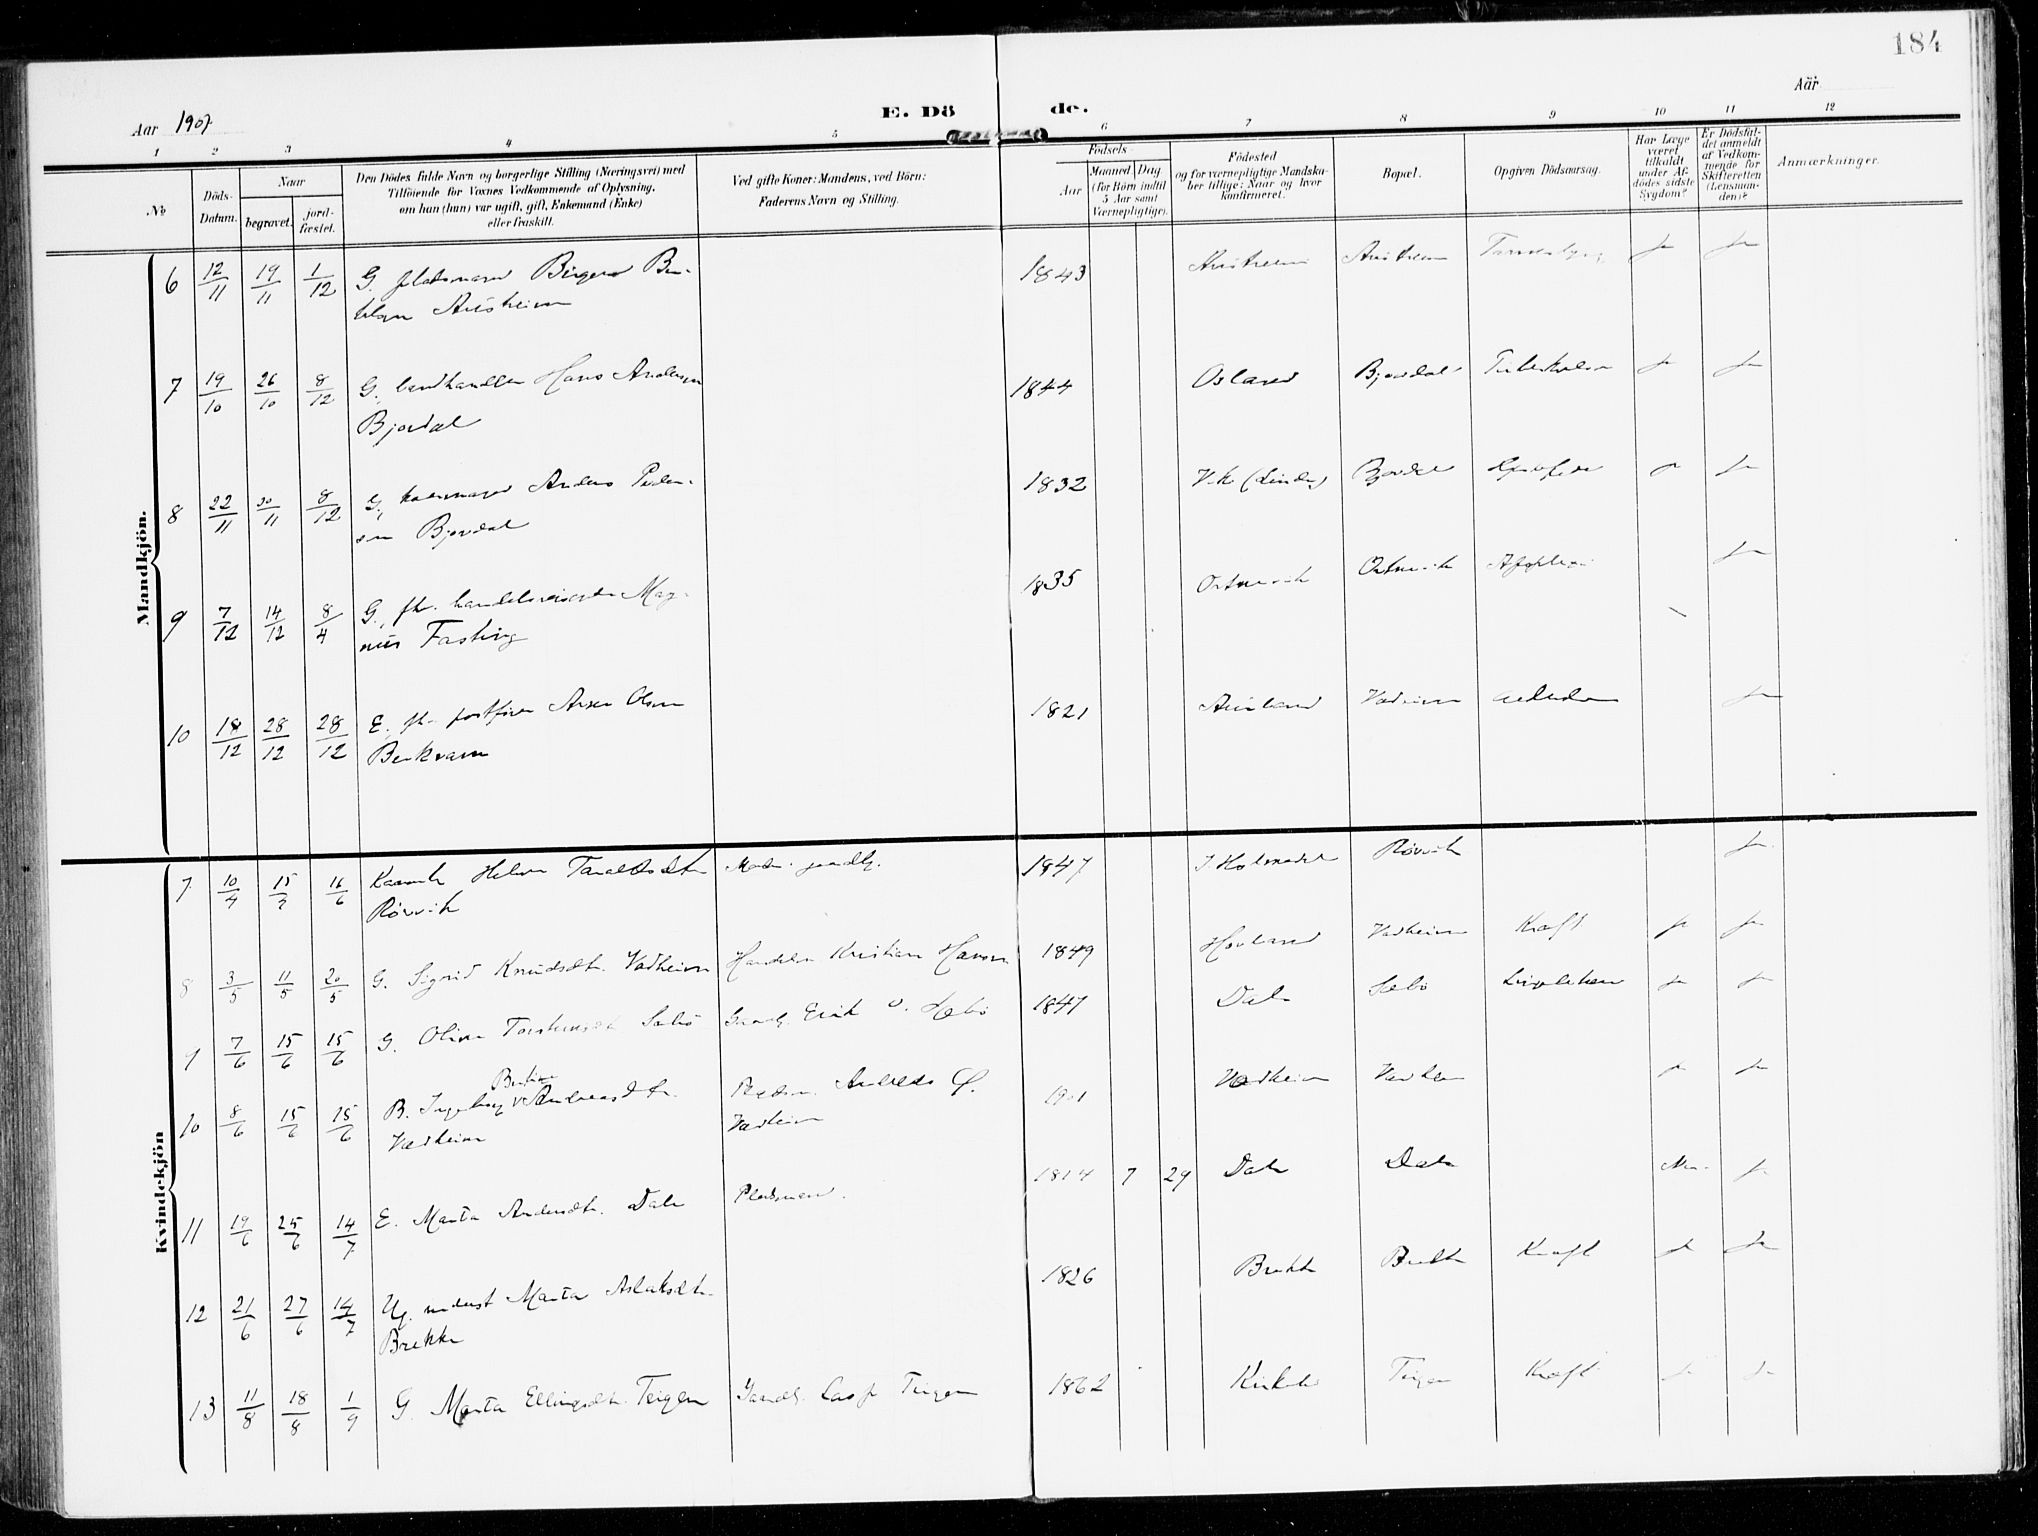 184
Aar 1907.
E. Dö de.
Aar
1 2 3 4 5 6 7 8 9 10 11 12
No
Döds-Datum.
Naar
begravet.
jord-fæstet.
Den Dödes fulde Navn og borgerlige Stilling (Næringsvei) med
Tilföiende for Voxnes Vedkommende af Oplysning,
om han (hun) var ugift, gift, Enkemand (Enke)
eller fraskilt.
Ved gifte Koner: Mandens, ved Börn:
Faderens Navn og Stilling.
Födsels
Aar
Maaned Dag
(for Börn indtil
5 Aar samt
Værnepligtige).
Födested
og for værnepligtige Mandska-
ber tillige: Naar og hvor
konfirmeret.
Bopæl.
Opgiven Dödsaarsag.
Har Læge
været
tilkaldt
under Af-
dödes sidste
Sygdom?
Er Dödsfal-
det anmeldt
af Vedkom-
mende for
Skifteretten
(Lensman-
den)?
Anmærkninger.
Mandkjön.
6 12/11 19/11 1/12 G. pladsmand Birger Ber- 1843 Austreim Austreim ja ja
telsen Austreim
7 19/10 26/10 8/12 G. landhandler Hans Andersen 1844 Osland Bjordal Tuberkulose ja ja
Bjordal
8 22/11 30/11 8/12 G. kaarmand Anders Peder- 1832 Vik (Lindås) Bjordal ja ja
sen Bjordal
9 7/12 14/12 8/4 G., fh. handelsreisende Mag- 1835 Ortnevik Ortnevik Apoplexi ja
nus Fasting
10 18/12 28/12 28/12 E. fh. postfører Olsen 1821 Aurland Vadheim ja
Berkvam
Kvindekjön
7 10/4 15/ 16/6 Helene Taraldsdtr. 1847 Rørvik ja
Rørvik
8 3/5 11/5 20/5 G. Sigrid Knudsdtr. Vadheim Handelsm. Kristian Hansen 1849 Hovland Vadheim Kræft ja ja
9 7/6 15/6 15/6 G. Oline Torstensdtr. Sæbø Gaardbr. Erik O. Sæbø 1847 Dale Sæbø ja ja
Bertine
10 8/6 15/6 15/6 B. Ingeborg Andreasdtr. Andreas 1901 Vadheim Vadheim ja ja
Vadheim Vadheim
11 19/6 25/6 14/7 E. Marta Andersdtr. Dale Pladsmand. 1814 7 29 Dale Dale Nei ja
12 21/6 27/6 14/7 Ug. Marta Aslaksdtr. 1826 Brekke Brekke Kræft ja ja
Brekke
13 11/8 18/8 1/9 G. Marta Ellingsdtr. Teigen Gaardbr. Teigen 1862 Teigen Kræft ja ja